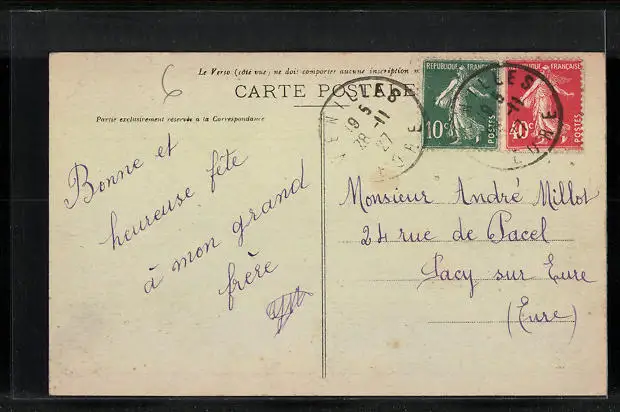 6
Le Verso (côté vue) ne doit comporter aucune inscription
CARTE POSTALE
Partie exclusivement réservée à la Correspondance
REPUBLIQUE FRANÇAISE
10c
POSTES
REPUBLIQUE FRANÇAISE
40c
POSTES
19 5
28 -11
27
EURE
Bonne et
heureuse fête
à mon grand
frère
Monsieur André Millot
24 rue de Pacel
Pacy sur Eure
(Eure)